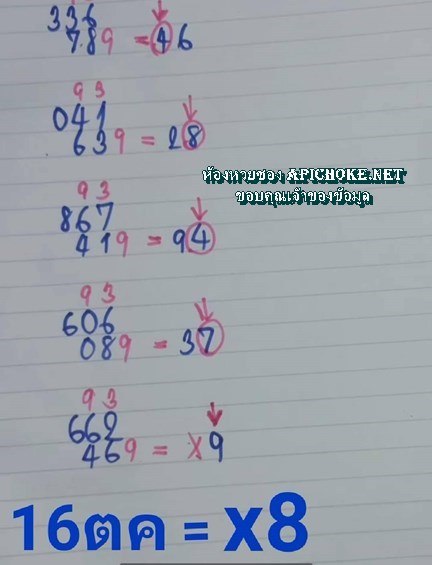 336
789 = 46
93
041
639 = 28
ห้องหวยซอง APICHOKE.NET
ขอบคุณเจ้าของข้อมูล
93
867
419 = 94
93
606
089 = 37
93
662
469 = X9
16ตค = X8